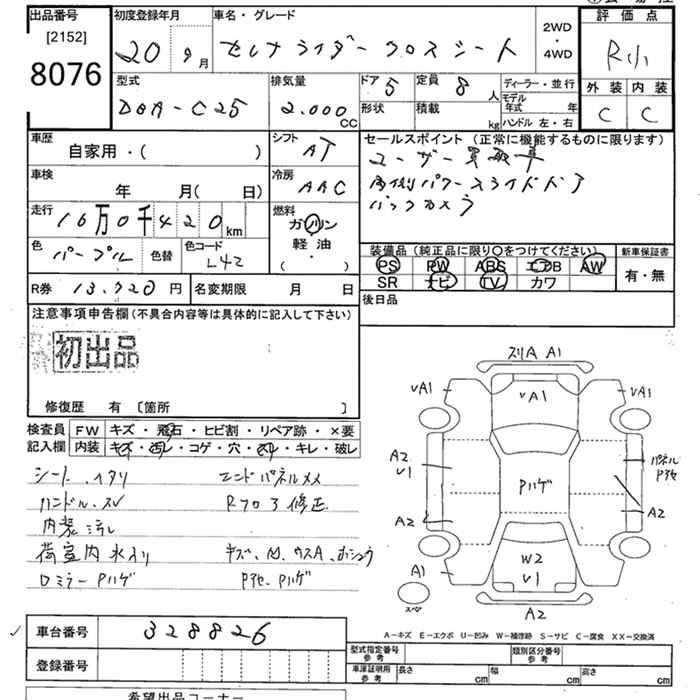 出品番号 初度登録年月 車名・グレード
[2152]
8076
20 9月 セレナ ライダー クロスシート
2WD・4WD
評価点
R小
外装 内装
C C
型式 排気量 ドア 定員 ディーラー・並行
DBA-C25 2.000CC 5 8人
形状 積載 kg モデル年式 年
ハンドル 左・右
車歴 シフト セールスポイント (正常に機能するものに限ります)
自家用・( ) AT
ユーザー買取車
両側パワースライドドア
バックカメラ
車検 冷房
年 月( 日) AAC
走行 燃料
16万0千420km ガソリン
軽油
( ・ )
色 パープル 色替 色コード L42
装備品(純正品に限り○をつけてください) 新車保証書
PS PW ABS エアB AW 有・無
SR ナビ TV カワ
R券 13.720円 名変期限 月 日
後日品
注意事項申告欄(不具合内容等は具体的に記入して下さい)
初出品
修復歴 有 [箇所 ]
検査員記入欄 FW キズ・飛石・ヒビ割・リペア跡・×要
内装 キズ・汚レ・コゲ・穴・スレ・キレ・破レ
シート、ヘタリ エンドパネルメメ
ハンドル、スレ Rフロア修正
内装汚レ
荷室内水入り
ロミラーPハゲ Pハゲ
スリA A1
VA1 VA1 VA1
A2 V1 Pハゲ パネル
A2 A2
A1 W2 V1 A1
スペア A2
A-キズ E-エクボ U-凹み W-補修跡 S-サビ C-腐食 XX-交換済
車台番号 328826
型式指定番号 参考 類別区分番号 参考
登録番号 車庫証明用 参考 長さ cm 幅 cm 高さ cm
希望出品コーナー